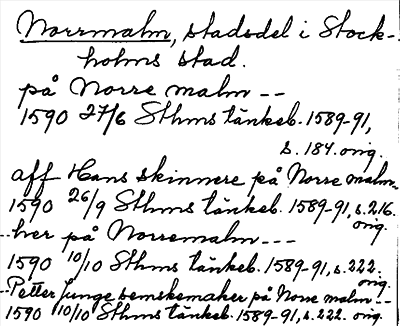 Norrmalm, stadsdel i Stock-
holms stad.
på Norre malm --
1590 27/6 Sthms tänkeb. 1589-91,
s. 184. orig.
aff Hans skinnere på Norre malm-
1590 26/9 Sthms tänkeb. 1589-91, s. 216.
orig.
--her på Norremalm ---
1590 10/10 Sthms tänkeb. 1589-91, s. 222.
orig.
--Petter Junge semskemaker på Norre malm --
1590 10/10 Sthms tänkeb. 1589-91, s. 222. orig.